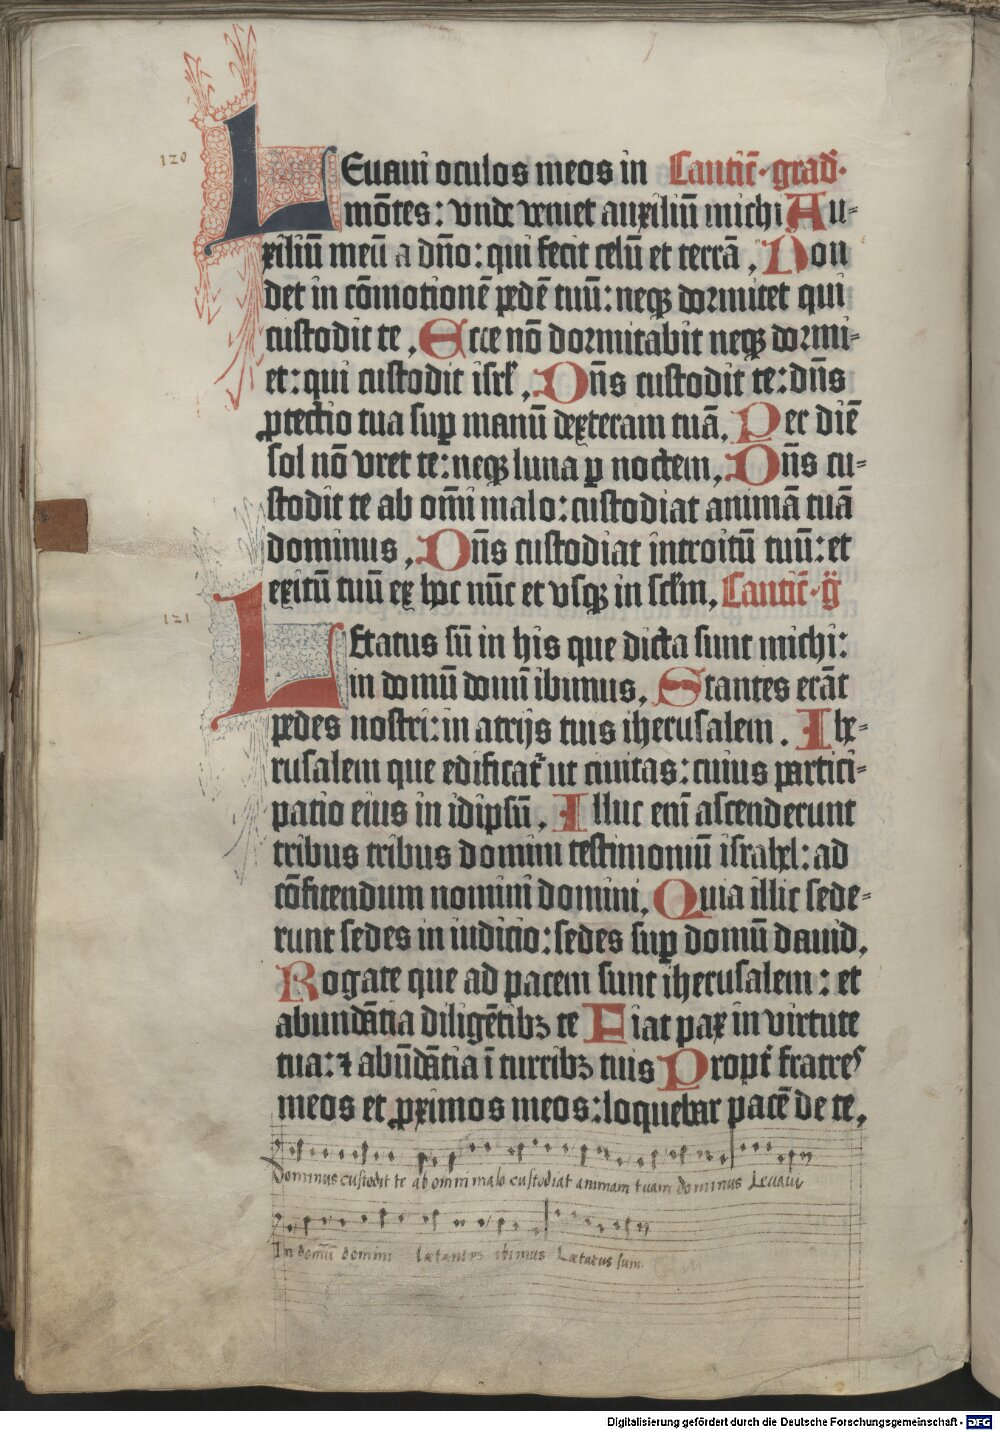 120
LEuaui oculos meos in Cantic̄·grad̄·
mōtes: vnde veniet auxiliū michi Au-
xiliū meū a dn̄o: qui fecit celū et terrā, Non
det in cōmotionē pedē tuū: neqꝫ dormitet qui
custodit te, Ecce nō dormitabit neqꝫ dormi-
et: qui custodit isrl̄, Dn̄s custodit te: dn̄s
ꝓtectio tua suꝑ manū dexteram tuā, Per diē
sol nō vret te: neqꝫ luna ꝑ noctem, Dn̄s cu-
stodit te ab om̄i malo: custodiat animā tuā
dominus, Dn̄s custodiat introitū tuū: et
exitū tuū ex hoc nūc et vsqꝫ in sclm̄, Cantic̄·g̈
121
LEtatus sū in his que dicta sunt michi:
in domū domī ibimus, Stantes erāt
pedes nostri: in atrijs tuis iherusalem. Ihe-
rusalem que edificat᷑ ut ciuitas: cuius partici-
patio eius in idipsū, Illuc eni᷑ ascenderunt
tribus tribus domini testimoniū israhel: ad
cōfitendum nomini domini, Quia illic sede-
runt sedes in iudicio: sedes suꝑ domū dauid,
Rogate que ad pacem sunt iherusalem: et
abundātia diligētibꝫ te Fiat pax in virtute
tua: ⁊ abūdātia ī turribꝫ tuis Propt̄ fratres
meos et ꝓximos meos: loquebar pacē de te,
Dominus custodit te ab omni malo custodiat animam tuam dominus Levavi
In domū domini lætantes ibimus Lætatus sum
Digitalisierung gefördert durch die Deutsche Forschungsgemeinschaft - DFG